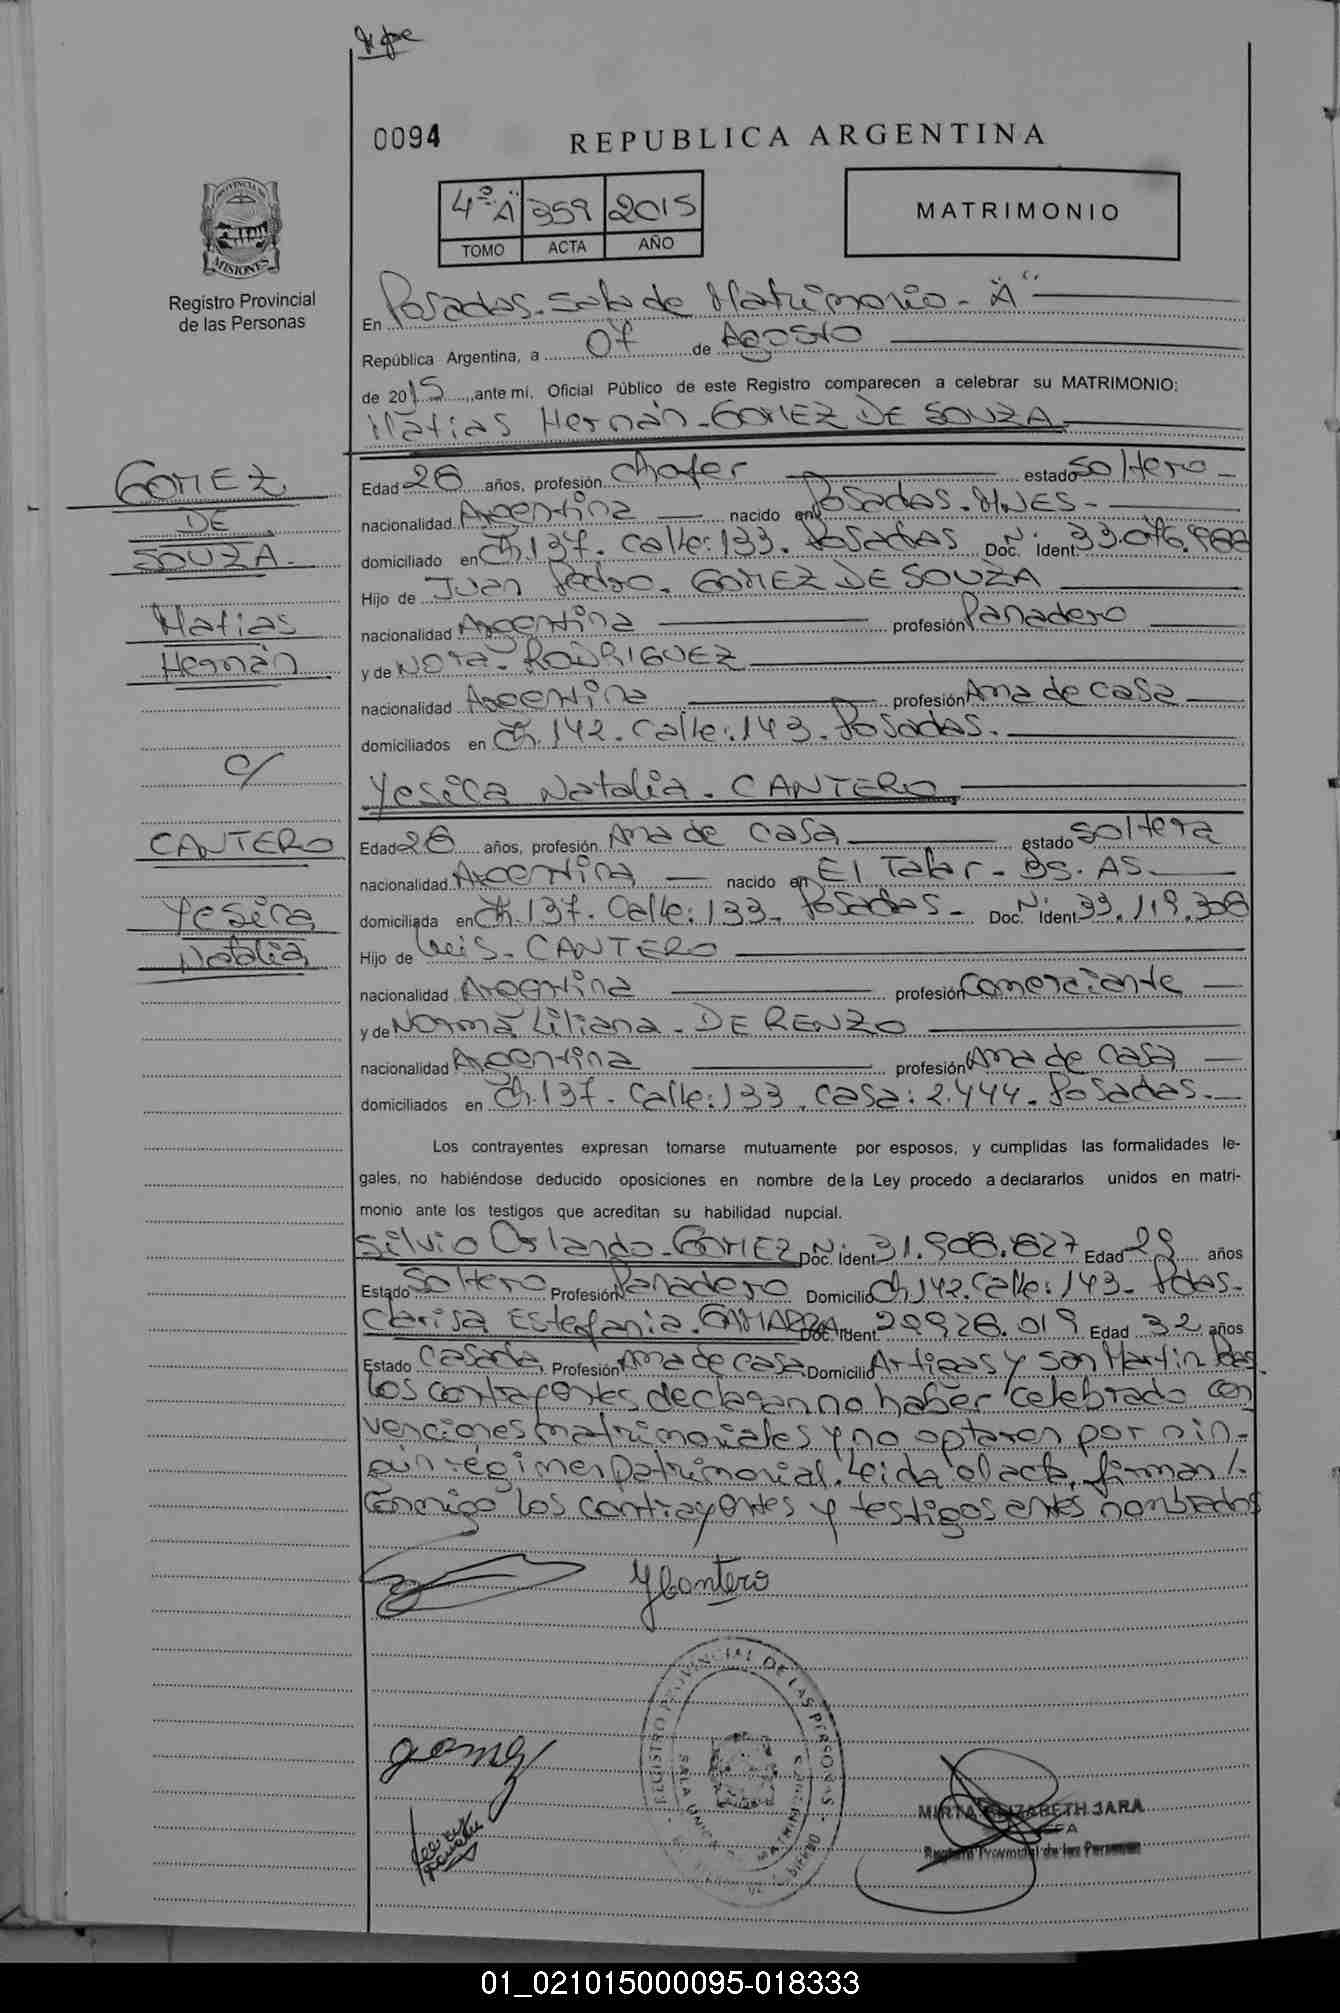 0094
REPUBLICA ARGENTINA
4º "A" 359 2015
TOMO ACTA AÑO
MATRIMONIO
PROVINCIA DE
MISIONES
Registro Provincial
de las Personas
En Posadas. Sala de Matrimonio - "A"
República Argentina, a 07 de Agosto
de 2015, ante mí, Oficial Público de este Registro comparecen a celebrar su MATRIMONIO:
Matias Hernán - GOMEZ DE SOUZA
GOMEZ
DE
SOUZA.
Matias
Hernán
c/
CANTERO
Yesica
Natalia
Edad 26 años, profesión Chofer estado Soltero -
nacionalidad Argentina nacido en Posadas. MNES -
domiciliado en Ch. 137. Calle: 133. Posadas Doc. Nº Ident. 33.076.
Hijo de Juan Pedro. GOMEZ DE SOUZA
nacionalidad Argentina profesión Panadero
y de Nora. RODRIGUEZ
nacionalidad Argentina profesión Ama de casa
domiciliados en Ch. 142. Calle: 143. Posadas.
Yesica Natalia. CANTERO
Edad 26 años, profesión Ama de casa estado Soltera
nacionalidad Argentina nacido en El Talar - BS. AS.
domiciliada en Ch. 137. Calle: 133. Posadas - Doc. Nº Ident. 33.119.308
Hijo de Luis. CANTERO
nacionalidad Argentina profesión Comerciante
y de Norma Liliana. DE RENZO
nacionalidad Argentina profesión Ama de casa
domiciliados en Ch. 137. Calle: 133. Casa: 2.444. Posadas.
Los contrayentes expresan tomarse mutuamente por esposos, y cumplidas las formalidades le-
gales, no habiéndose deducido oposiciones en nombre de la Ley procedo a declararlos unidos en matri-
monio ante los testigos que acreditan su habilidad nupcial.
Silvio Orlando. GOMEZ Doc. Nº Ident. 31.908.827 Edad 29 años
Estado Soltero Profesión Panadero Domicilio Ch. 142. Calle: 143. Pdas.
Clarisa Estefania. GAMARRA Doc. Ident. 29926.019 Edad 32 años
Estado Casada, Profesión Ama de casa Domicilio Artigas y San Martin Pdas.
los contrayentes declaran no haber celebrado con
venciones matrimoniales y no optaron por nin-
gún régimen patrimonial. Leida el acta, firman /.
Conmigo los contrayentes y testigos antes nombrados
YCantero
REGISTRO PROVINCIAL DE LAS PERSONAS
SALA UNICA MATRIMONIO
gomez
MIRTA ELIZABETH JARA
JEFA
Registro Provincial de las Personas
01_021015000095-018333